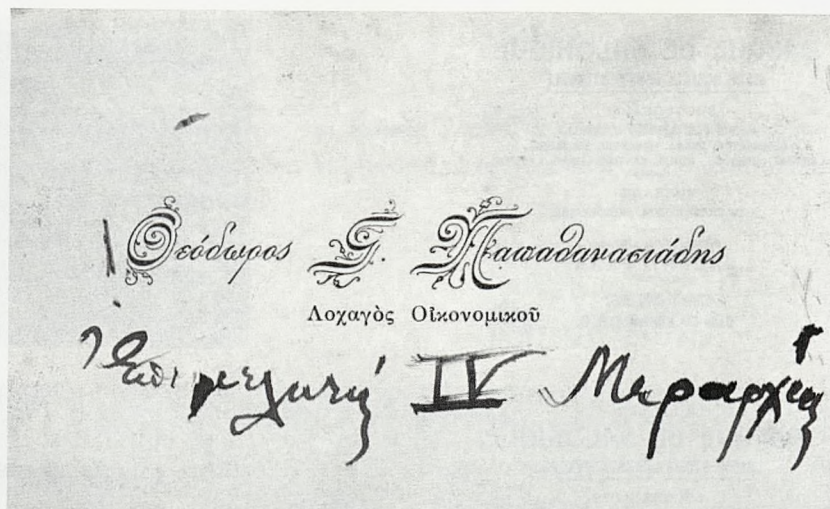 Θεόδωρος Γ. Παπαθανασιάδης
Λοχαγὸς Οἰκονομικοῦ
Ἐπιμελητὴς IV Μεραρχίας